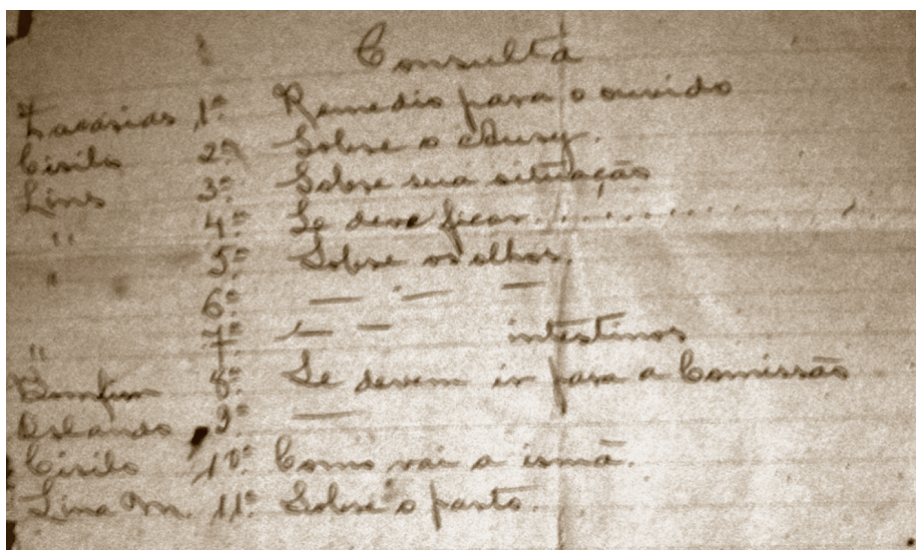 Consulta
Zacarias 1º Remedio para o ouvido
Cirilo 2º Sobre o
Lins 3º Sobre sua situação
" 4º Se deve ficar..............
" 5º Sobre os olhos.
6º — " — —
" 7º — — intestinos
Bomfim 8º Se devem ir para a Comissão
Orlando 9º —
Cirilo 10º Como vai a irmã.
Lina M. 11º Sobre o parto.